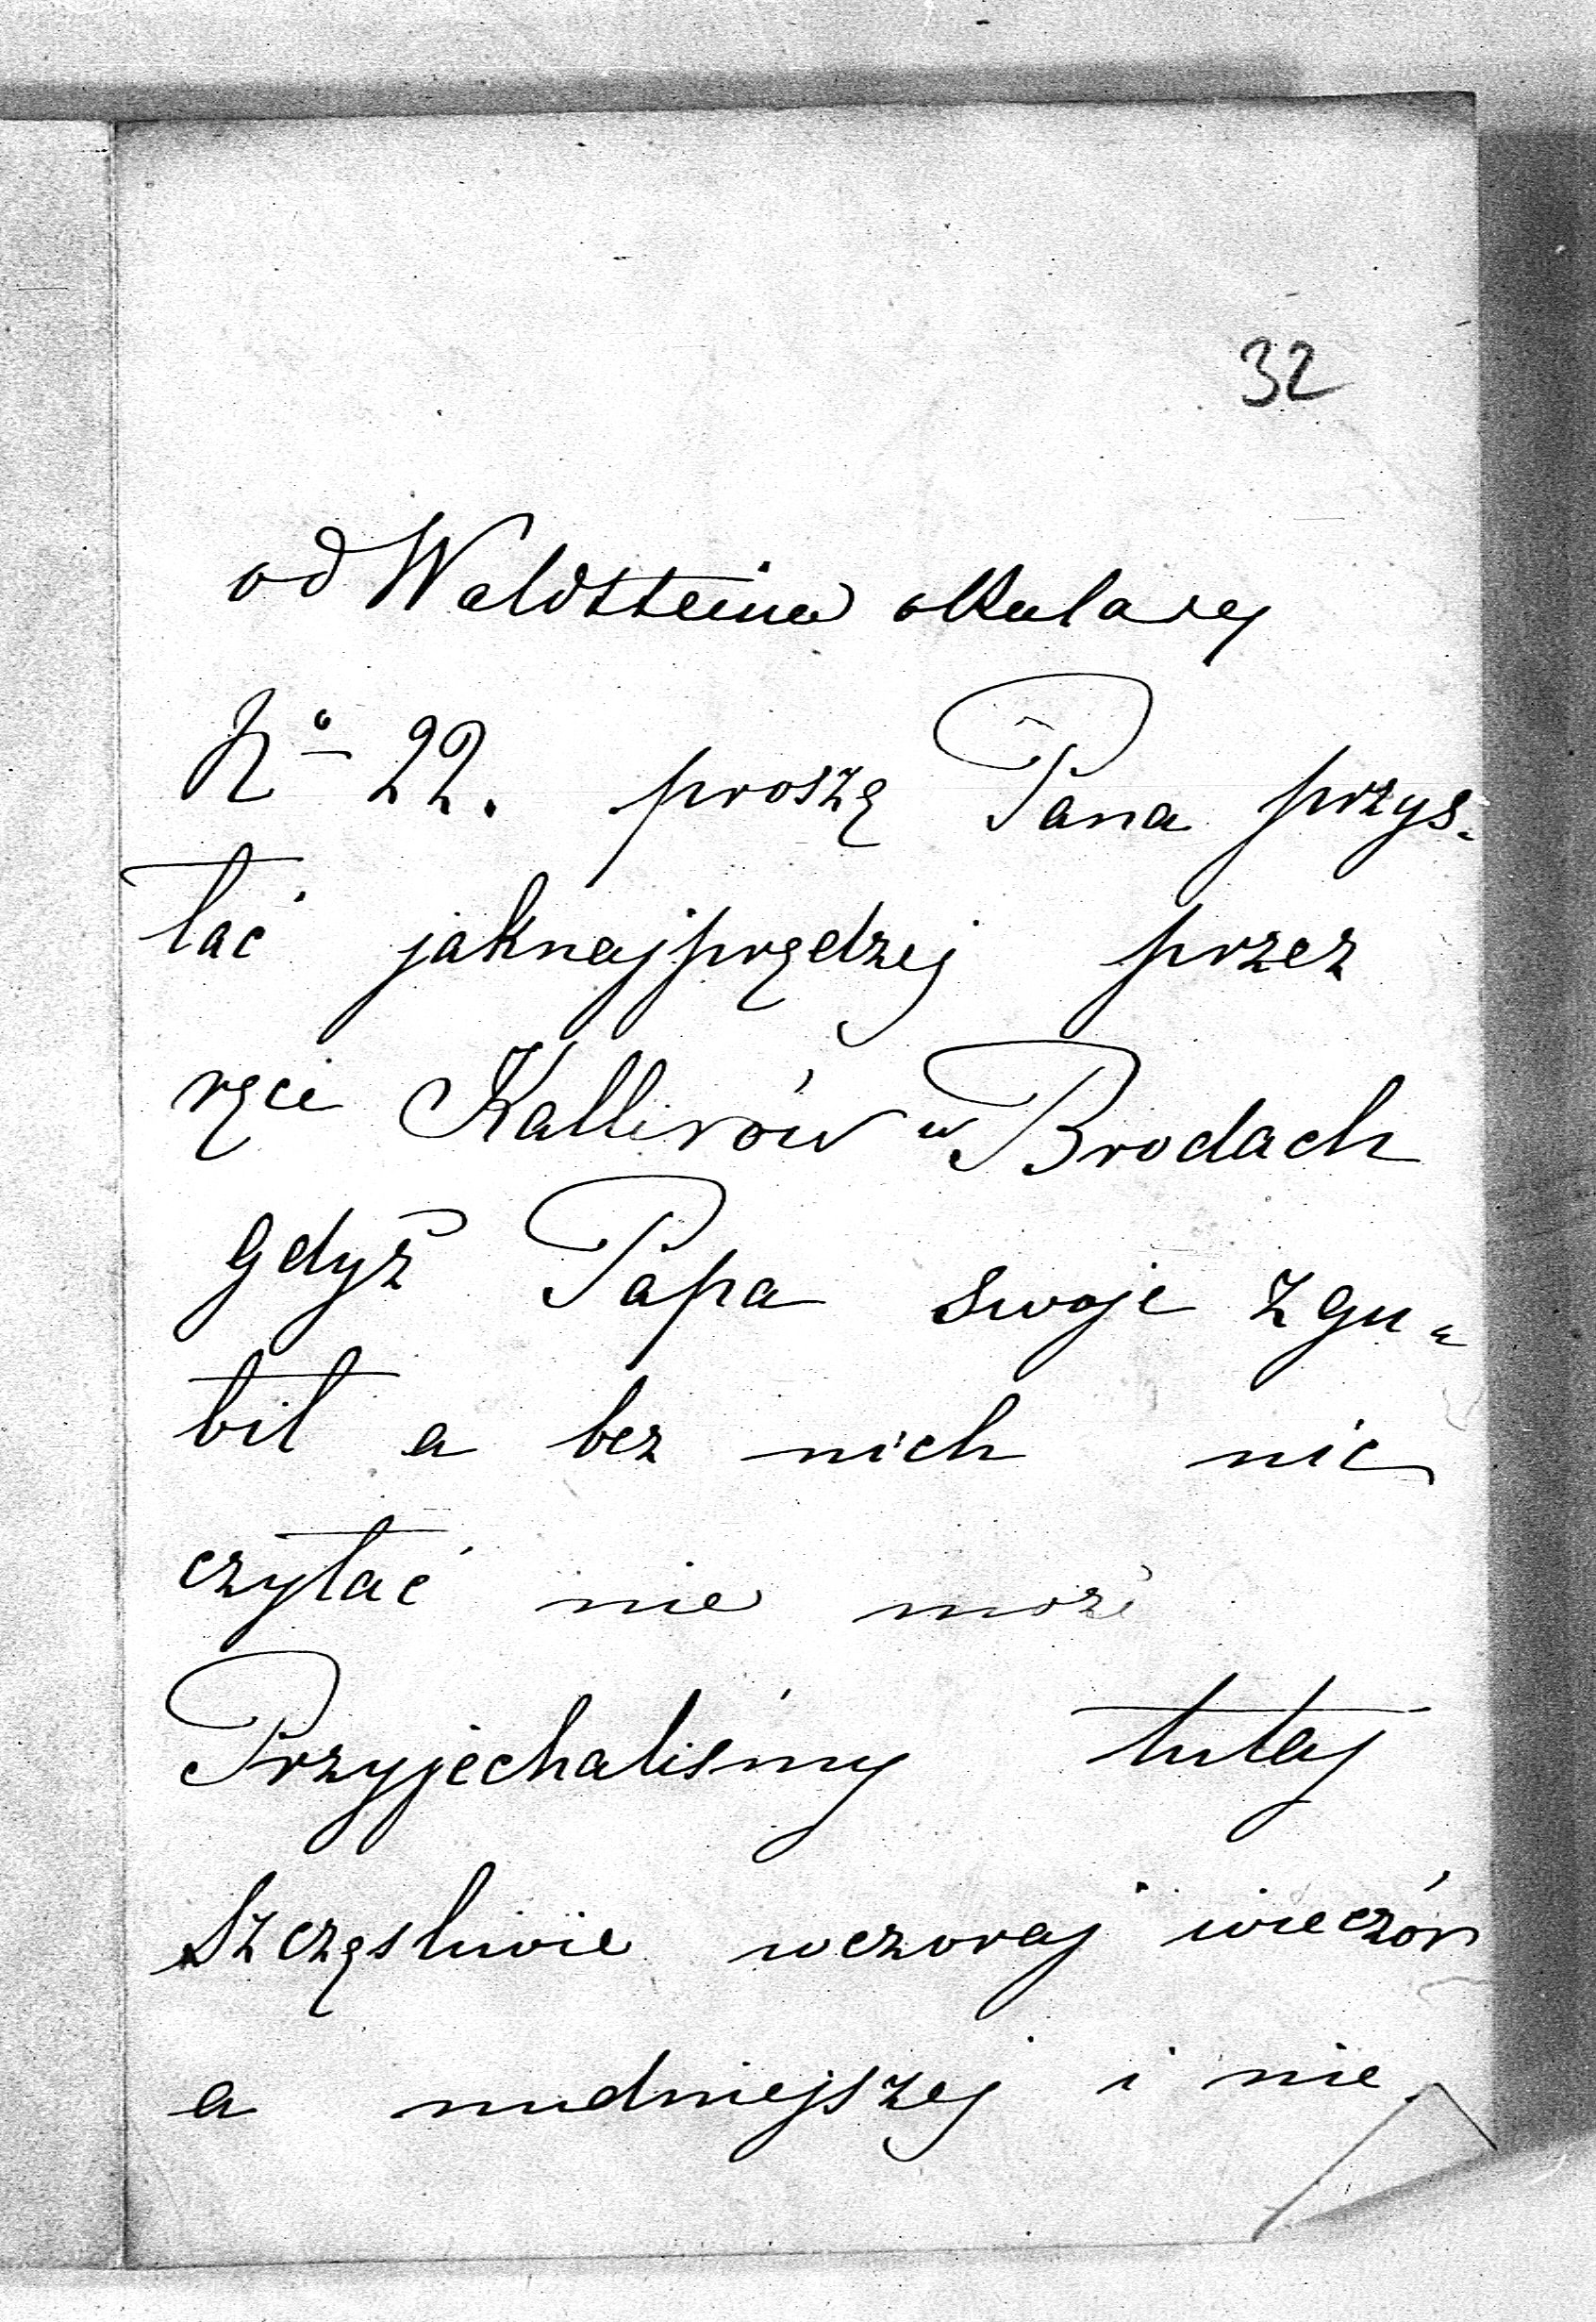 32
od Waldsteina okulary
No 22. proszę Pana przys-
łać jaknajprędzej przez
ręce Kallirów w Brodach
gdyż Papa swoje zgu-
bił a bez nich nic
czytać nie może
Przyjechaliśmy tutaj
szczęśliwie wczoraj wieczór
a nudniejszej i nie